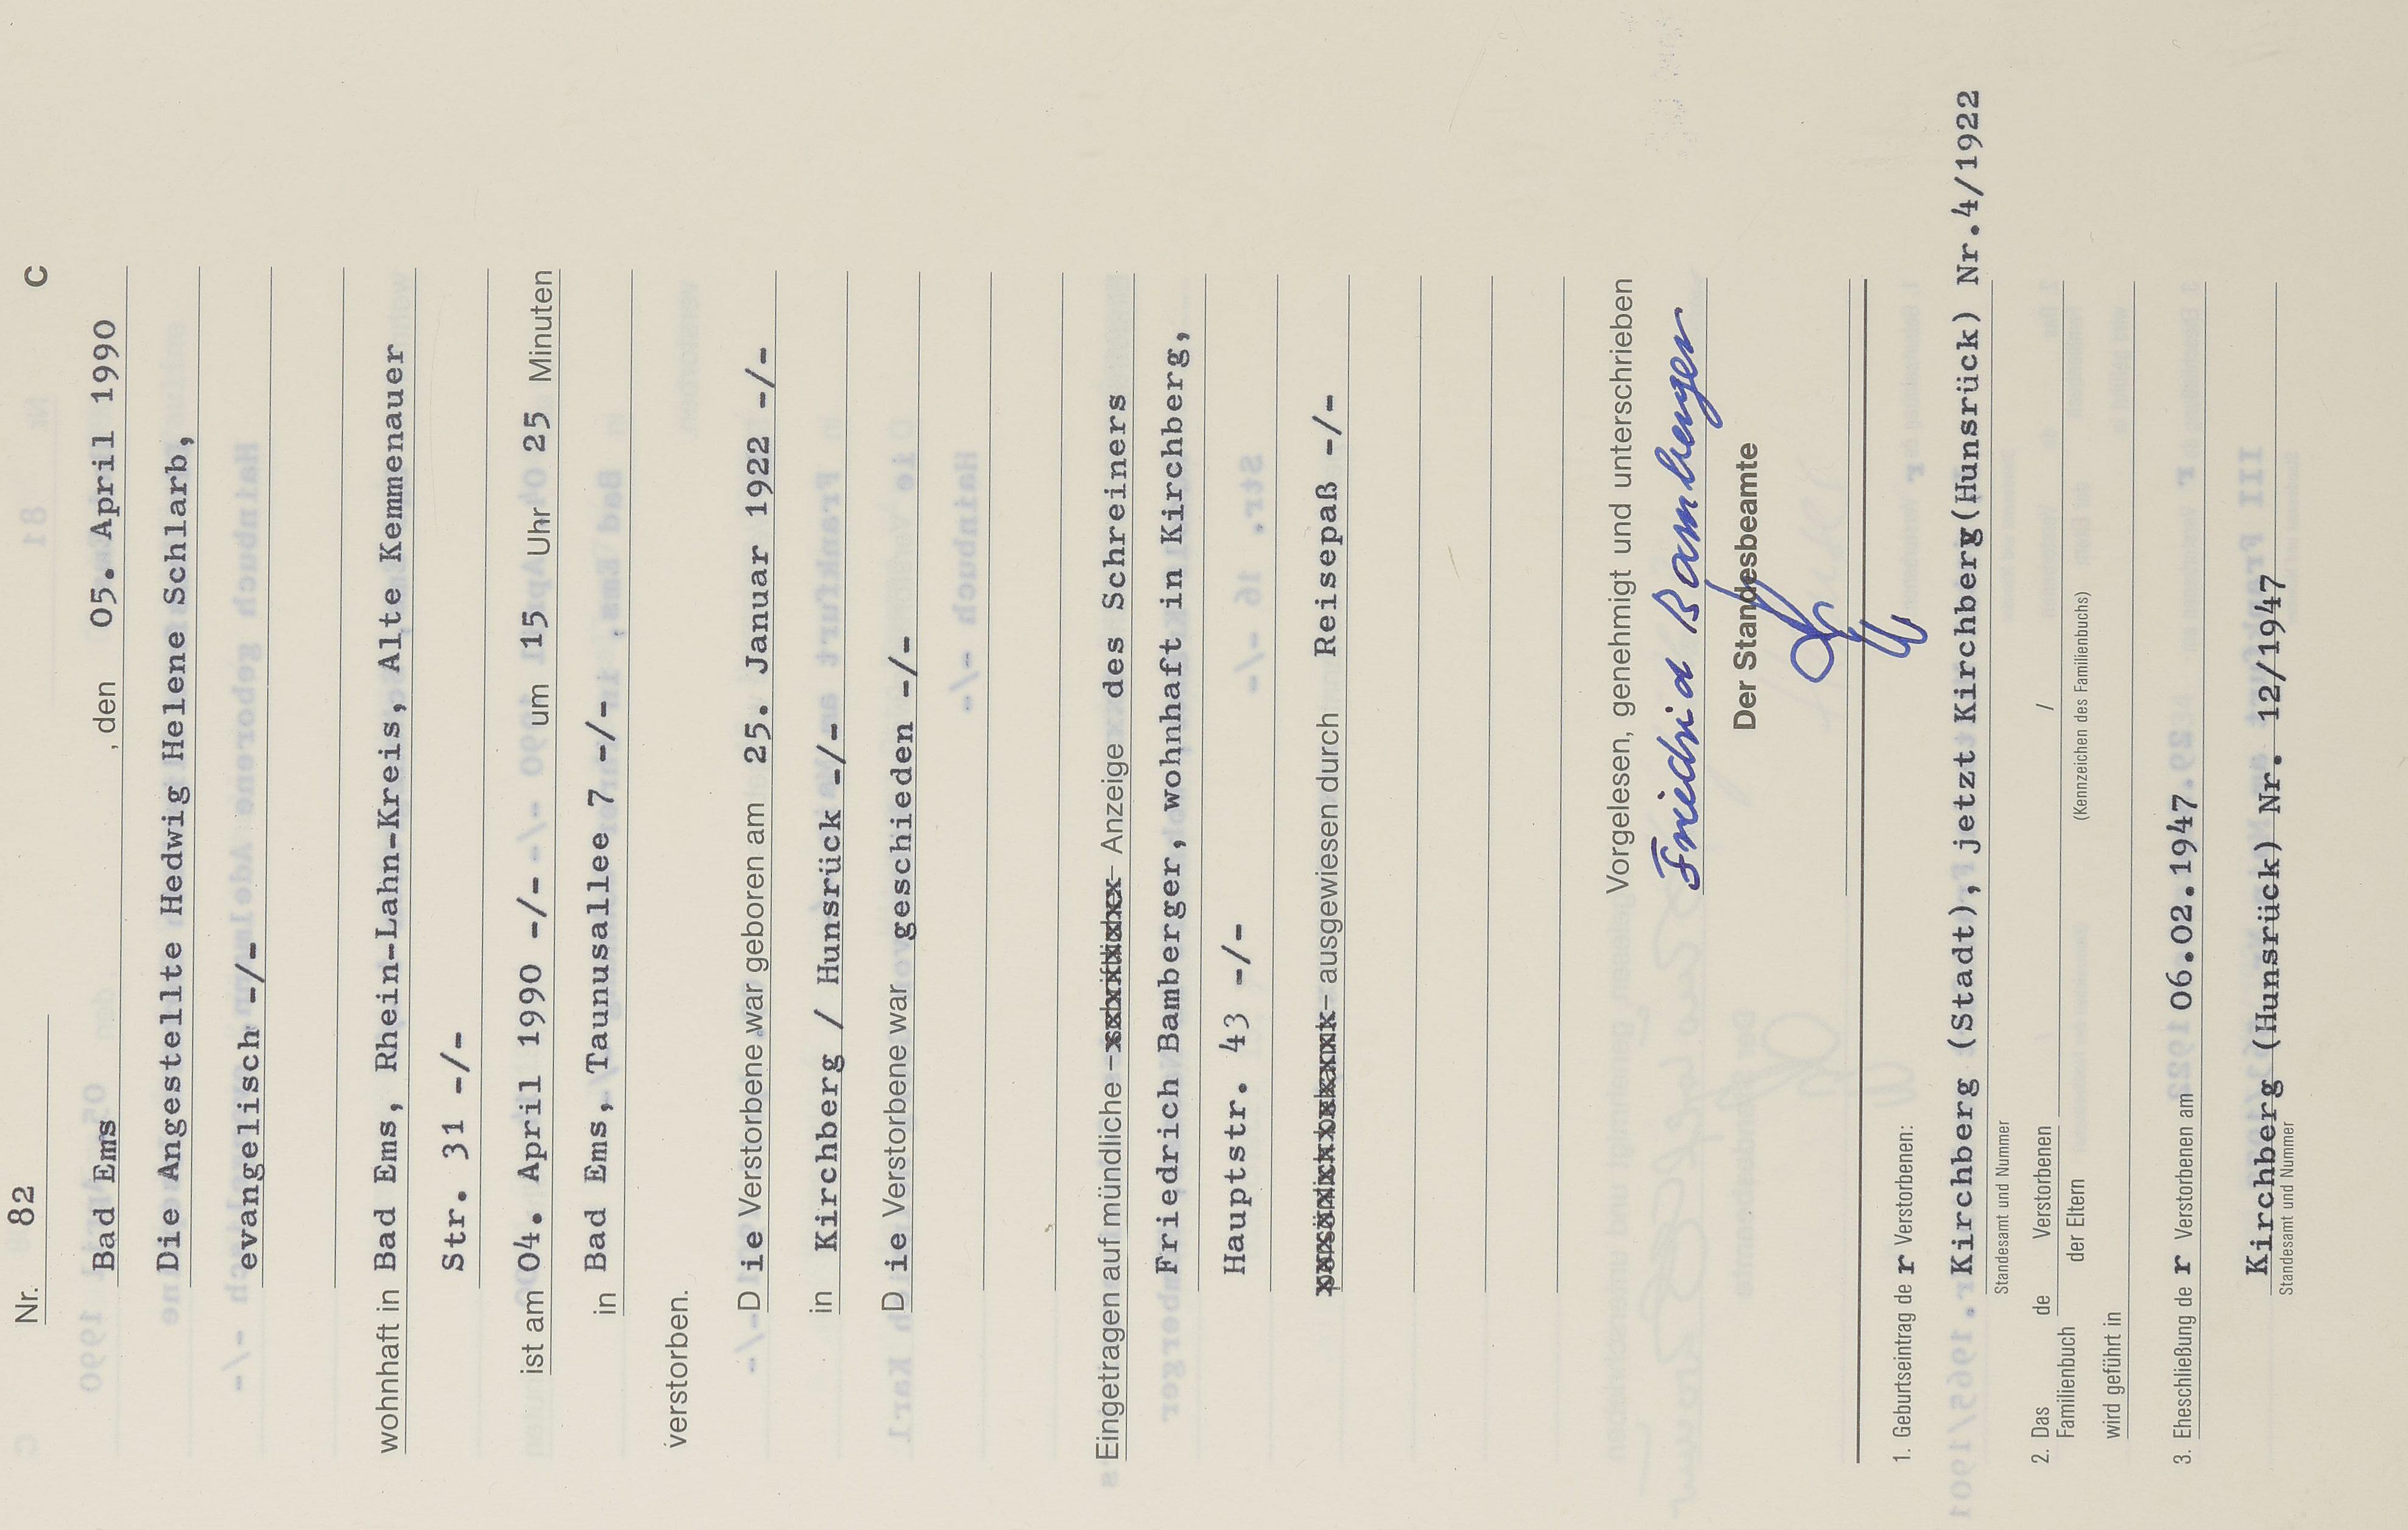 Nr. 82 C
Bad Ems , den 05. April 1990
Die Angestellte Hedwig Helene Schlarb,
evangelisch -/-
wohnhaft in Bad Ems, Rhein-Lahn-Kreis, Alte Kemmenauer
Str. 31 -/-
ist am 04. April 1990 -/- um 15 Uhr 25 Minuten
in Bad Ems, Taunusallee 7 -/-
verstorben.
Die Verstorbene war geboren am 25. Januar 1922 -/-
in Kirchberg / Hunsrück -/-
Die Verstorbene war geschieden -/-
Eingetragen auf mündliche - schriftliche - Anzeige des Schreiners
Friedrich Bamberger, wohnhaft in Kirchberg,
Hauptstr. 43 -/-
persönlich bekannt - ausgewiesen durch Reisepaß -/-
Vorgelesen, genehmigt und unterschrieben
Friedrich Bamberger
Der Standesbeamte
1. Geburtseintrag der Verstorbenen:
Kirchberg (Stadt), jetzt Kirchberg(Hunsrück) Nr.4/1922
Standesamt und Nummer
2. Das Familienbuch de Verstorbenen / der Eltern /
(Kennzeichen des Familienbuchs)
wird geführt in
3. Eheschließung der Verstorbenen am 06.02.1947
Kirchberg (Hunsrück) Nr. 12/1947
Standesamt und Nummer